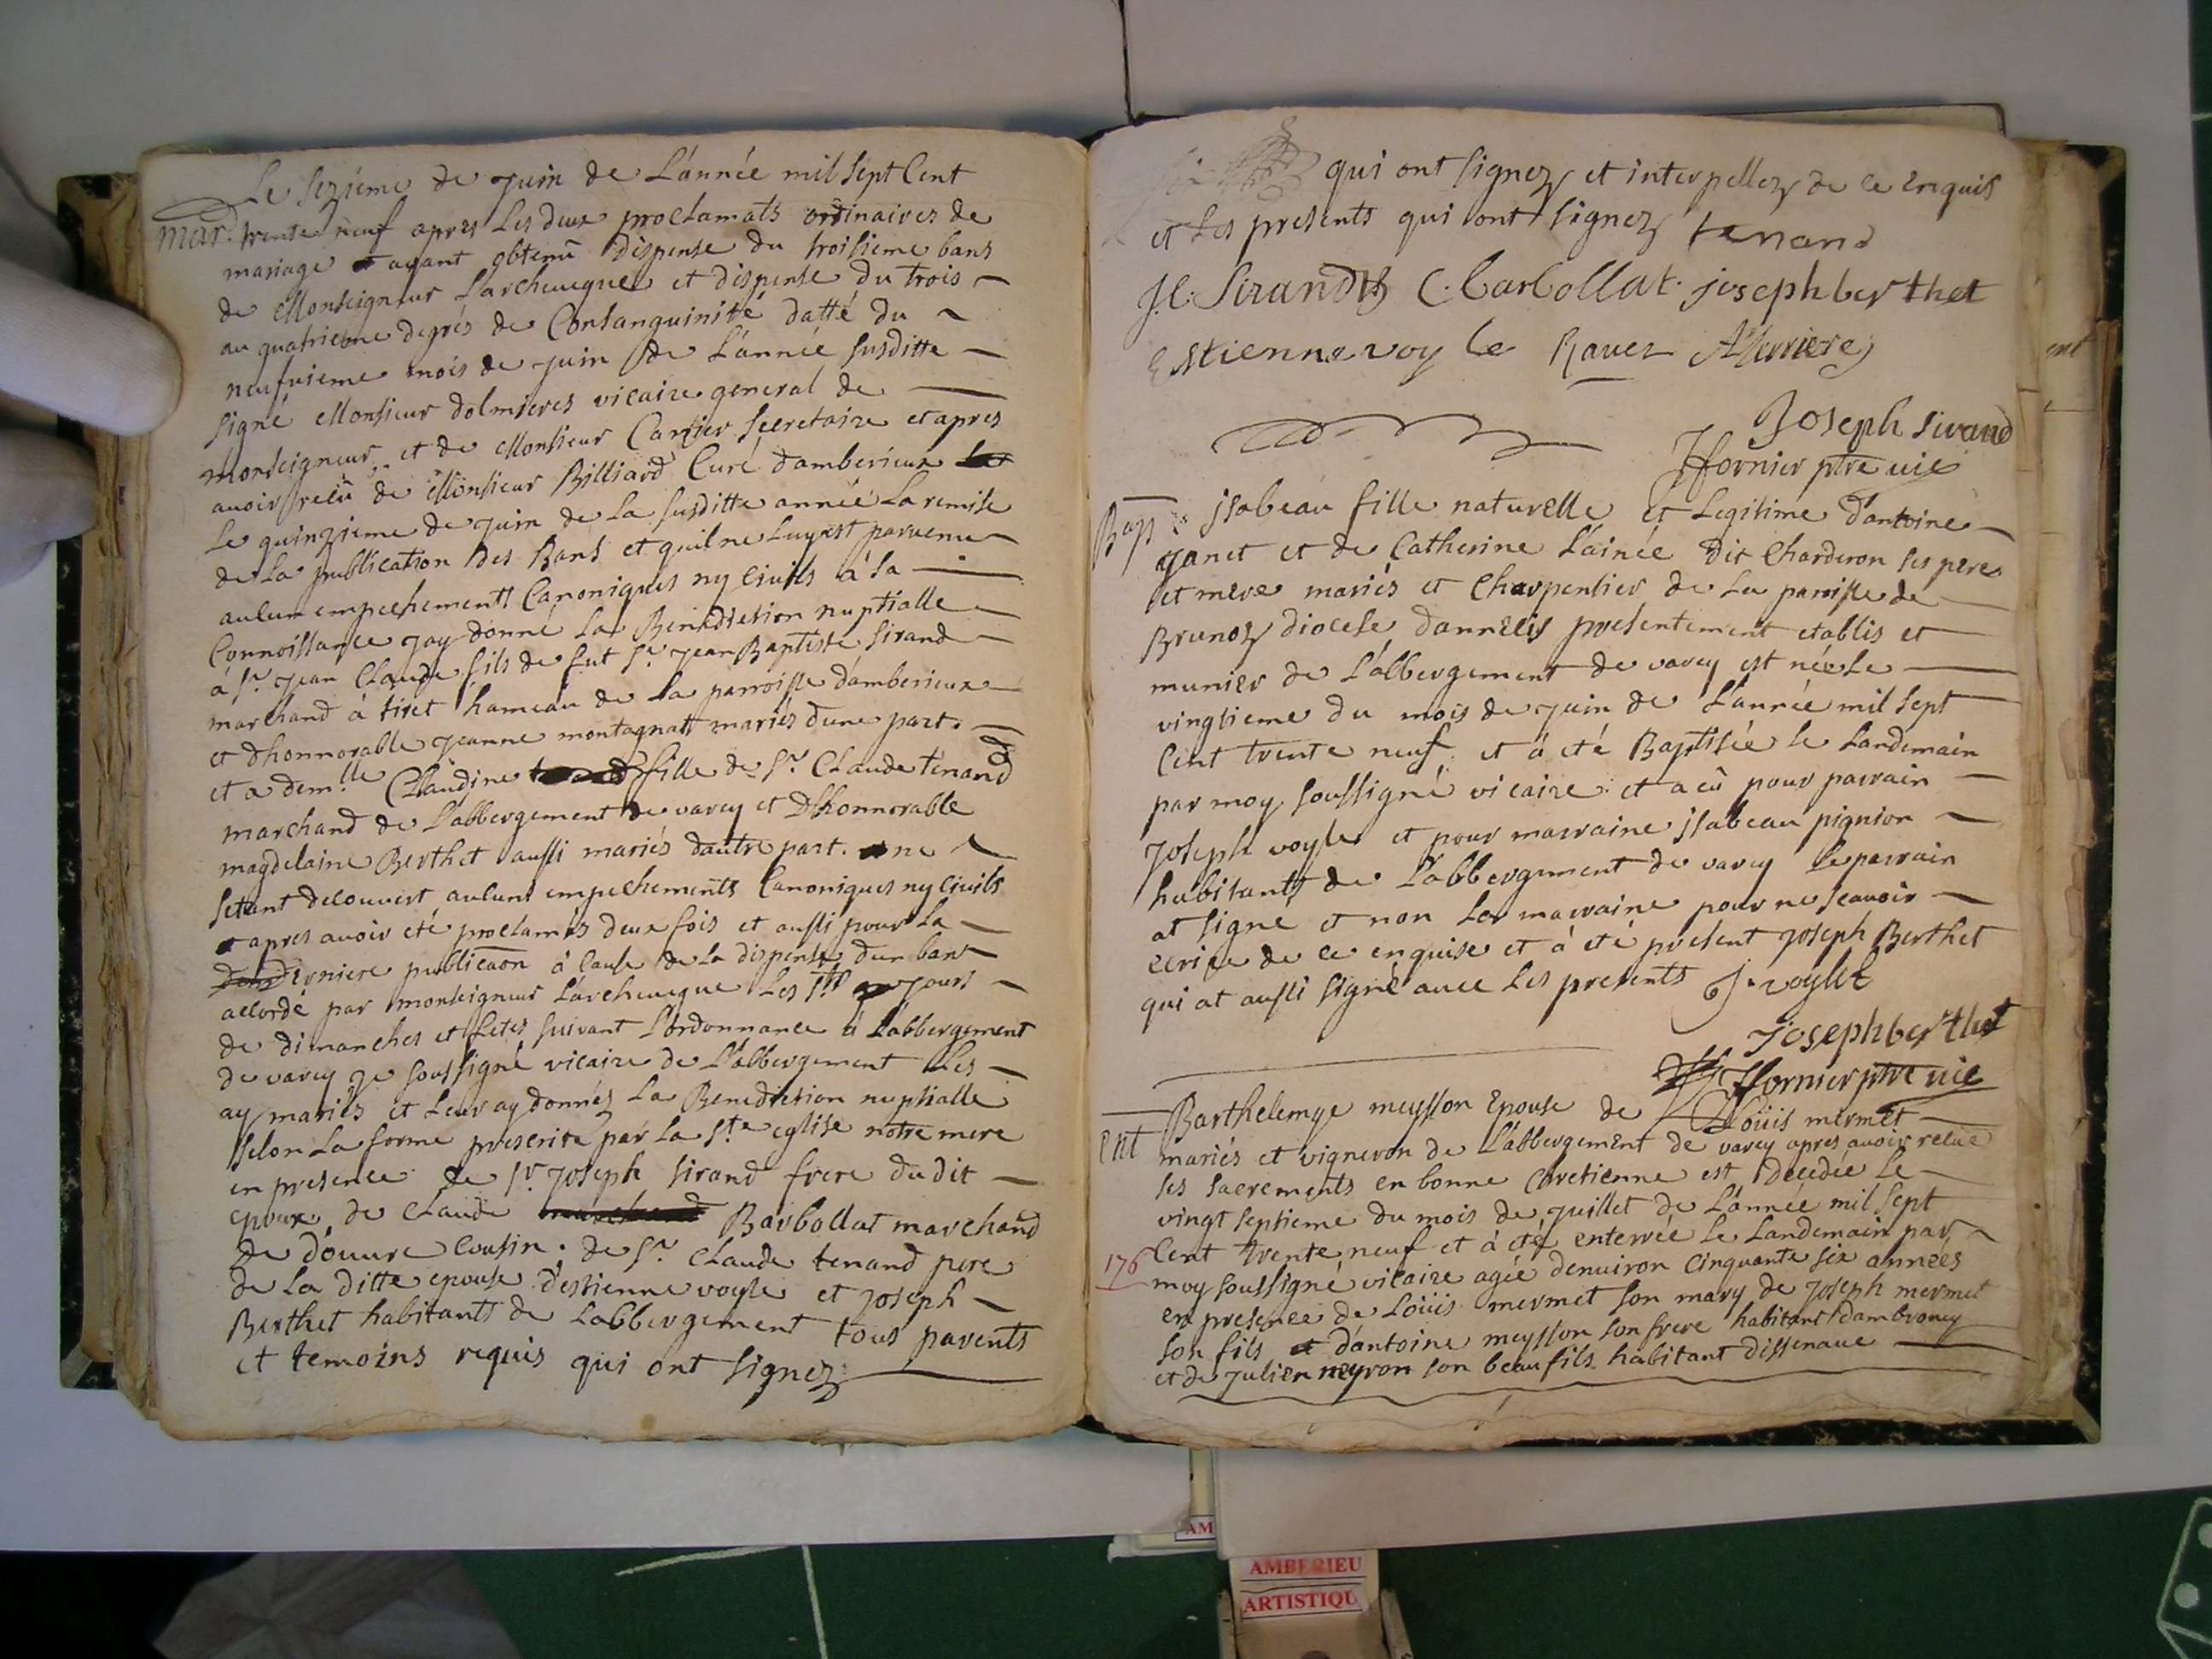 Le sezieme de juin de L'année mil sept Cent
mar. trente neuf apres Les deux proclamats ordinaires de
mariage ayant obtenû dispense du troisieme bans
de Monseigneur L'archeueque et dispense du trois
au quatrieme degrés de Consanguinité datté du
neufuieme mois de juin de L'année susditte
signé Monsieur dolmieres vicaire general de
monseigneur et de Monsieur Cartier secretaire et apres
auoir reçû de Monsieur Billiard Curé damberieux
Le quinzieme de juin de La susditte année La remise
de La publication des Bans et quil ne Luy est paruenu
aulun empechements Canoniques ny Ciuils à sa
Connoissance jay donné La Benediction nuptialle
à Sr. jean Claude fils de fut Sr. jean Baptiste sirand
marchand à tiret hameau de La parroisse d'amberieux
et dhonnorable jeanne montagnat mariés d'une part.
et a demlle Claudine fille de Sr. Claude tenand
marchand de L'abbergement de varey et Dhonnorable
magdelaine Berthet aussi mariés dautre part. ne
setant decouvert auluns empechements Canoniques ny Ciuils
apres auoir eté proclamés deux fois et aussi pour La
derniere publicaon à Cause de La dispense dun bans
accordé par monseigneur L'archeueque Les sts jours
de dimanches et fetes suivant L'ordonnance à L'abbergement
de varey je soussigné vicaire de L'abbergement Les
ay mariés et Leur ay donnés La Benediction nuptialle
selon La forme prescrite par La Ste eglise notre mere
en presence de Sr. joseph sirand frere du dit
epoux, de Claude Barbollat marchand
de douure Cousin. de Sr. Claude tenand pere
de La ditte epouse, d'estienne voyle et joseph
Berthet habitants de Labbergement tous parents
et temoins requis qui ont signez
qui ont signez et interpellez de ce enquis
et Les presents qui ont signez tenand
J.C. Sirand C. barbollat. joseph berthet
Estienne voyle Rauez
Joseph sirand
fornier ptre uic
Bap: jsabeau fille naturelle et Legitime d'antoine
janet et de Catherine L'ainée dit Charderon ses pere
et mere mariés et Charpentier de La paroisse de
Brunoz diocese dannecis presentement etablis et
munier de L'albergement de varey est née Le
vingtieme du mois de juin de L'année mil sept
Cent trente neuf et à eté Baptisée le Landemain
par moy soussigné vicaire et a eû pour parrain
joseph voyle et pour marraine jsabeau pignion
habitants de L'abbergement de varey Le parrain
at signé et non La marraine pour ne scauoir
ecrire de ce enquise et à eté present joseph Berthet
qui at aussi signé auec Les presents J. voylle
Joseph berthet
fornier ptre uic
Barthelemye meysson Epouse de Loüis mermet
ent mariés et vigneron de L'abbergement de varey apres auoir reçue
ses sacrements en bonne Chretienne est decedée Le
vingt septieme du mois de juillet de L'année mil sept
176 Cent trente neuf et à eté enterrée le Landemain par
moy soussigné vicaire agée denuiron Cinquante six années
en presence de Loüis mermet son mary de joseph mermet
son fils d'antoine meysson son frere habitant dambroney
et de julien neyron son beau fils habitant dissenaue
ent
AM
AMBERIEU
ARTISTIQU